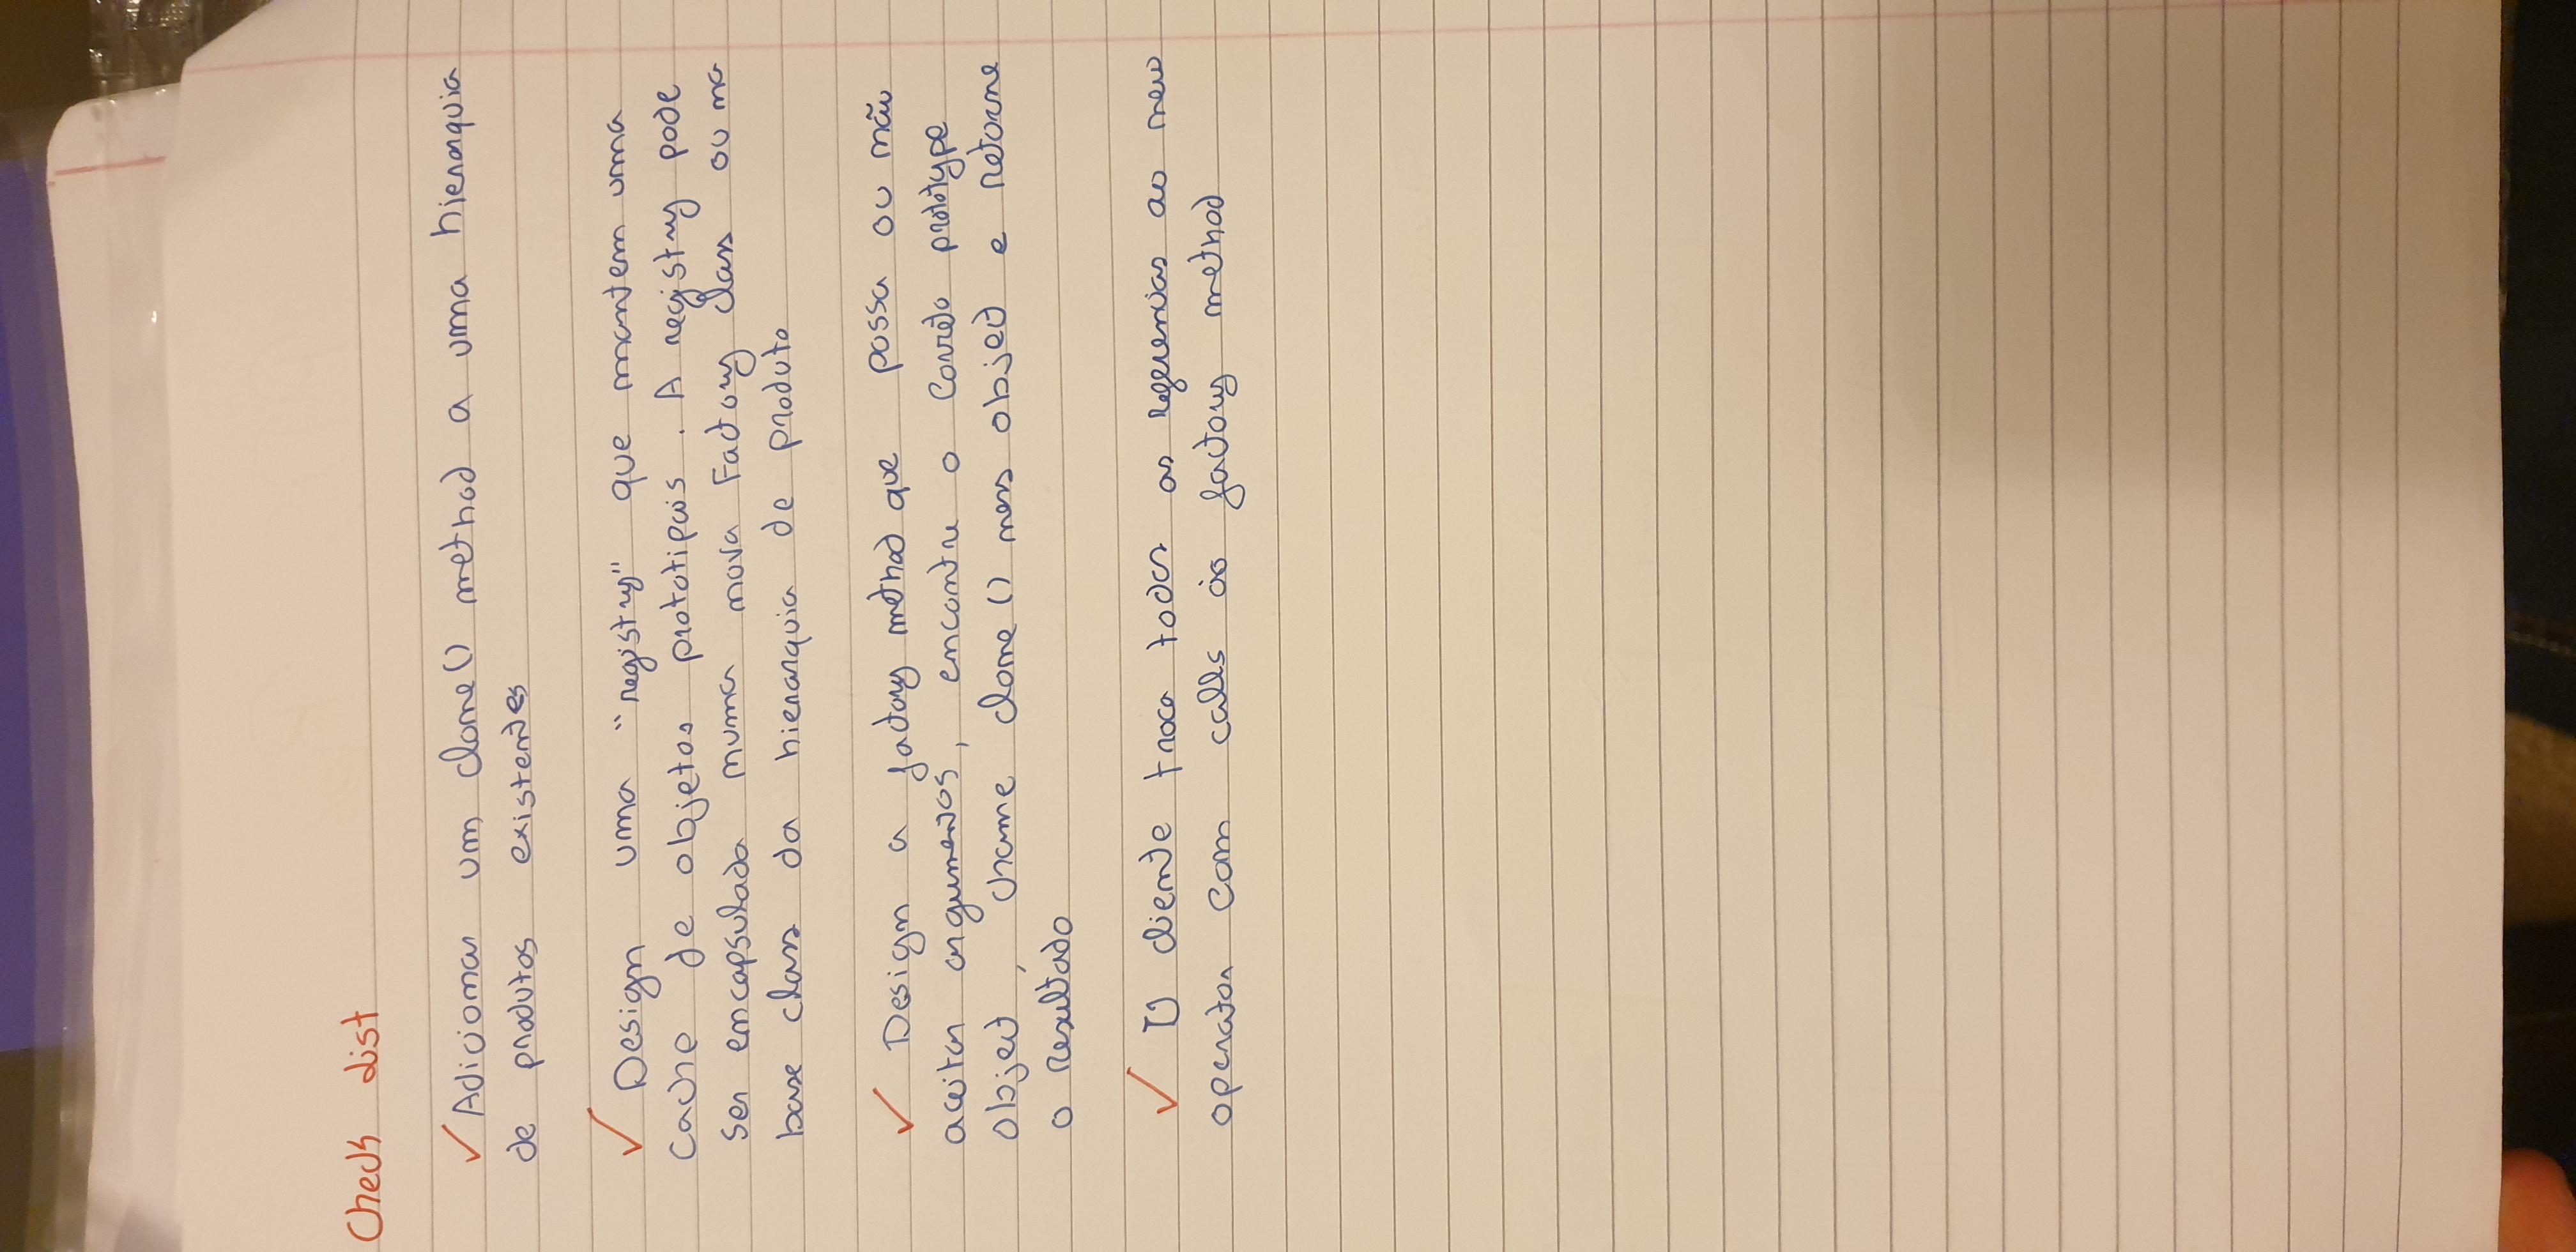 Check List
✓ Adicionar um clone() method a uma hierarquia
de produtos existentes
✓ Design uma "registry" que mantem uma
cache de objetos prototipais. A registry pode
ser encapsulada numa nova Factory class ou na
base class da hierarquia de produto
✓ Design a factory method que possa ou não
aceitar argumentos, encontre o correto prototype
object, chame clone() ness object e retorne
o resultado
✓ O cliente troca todas as referencias ao new
operator com calls ao factory method